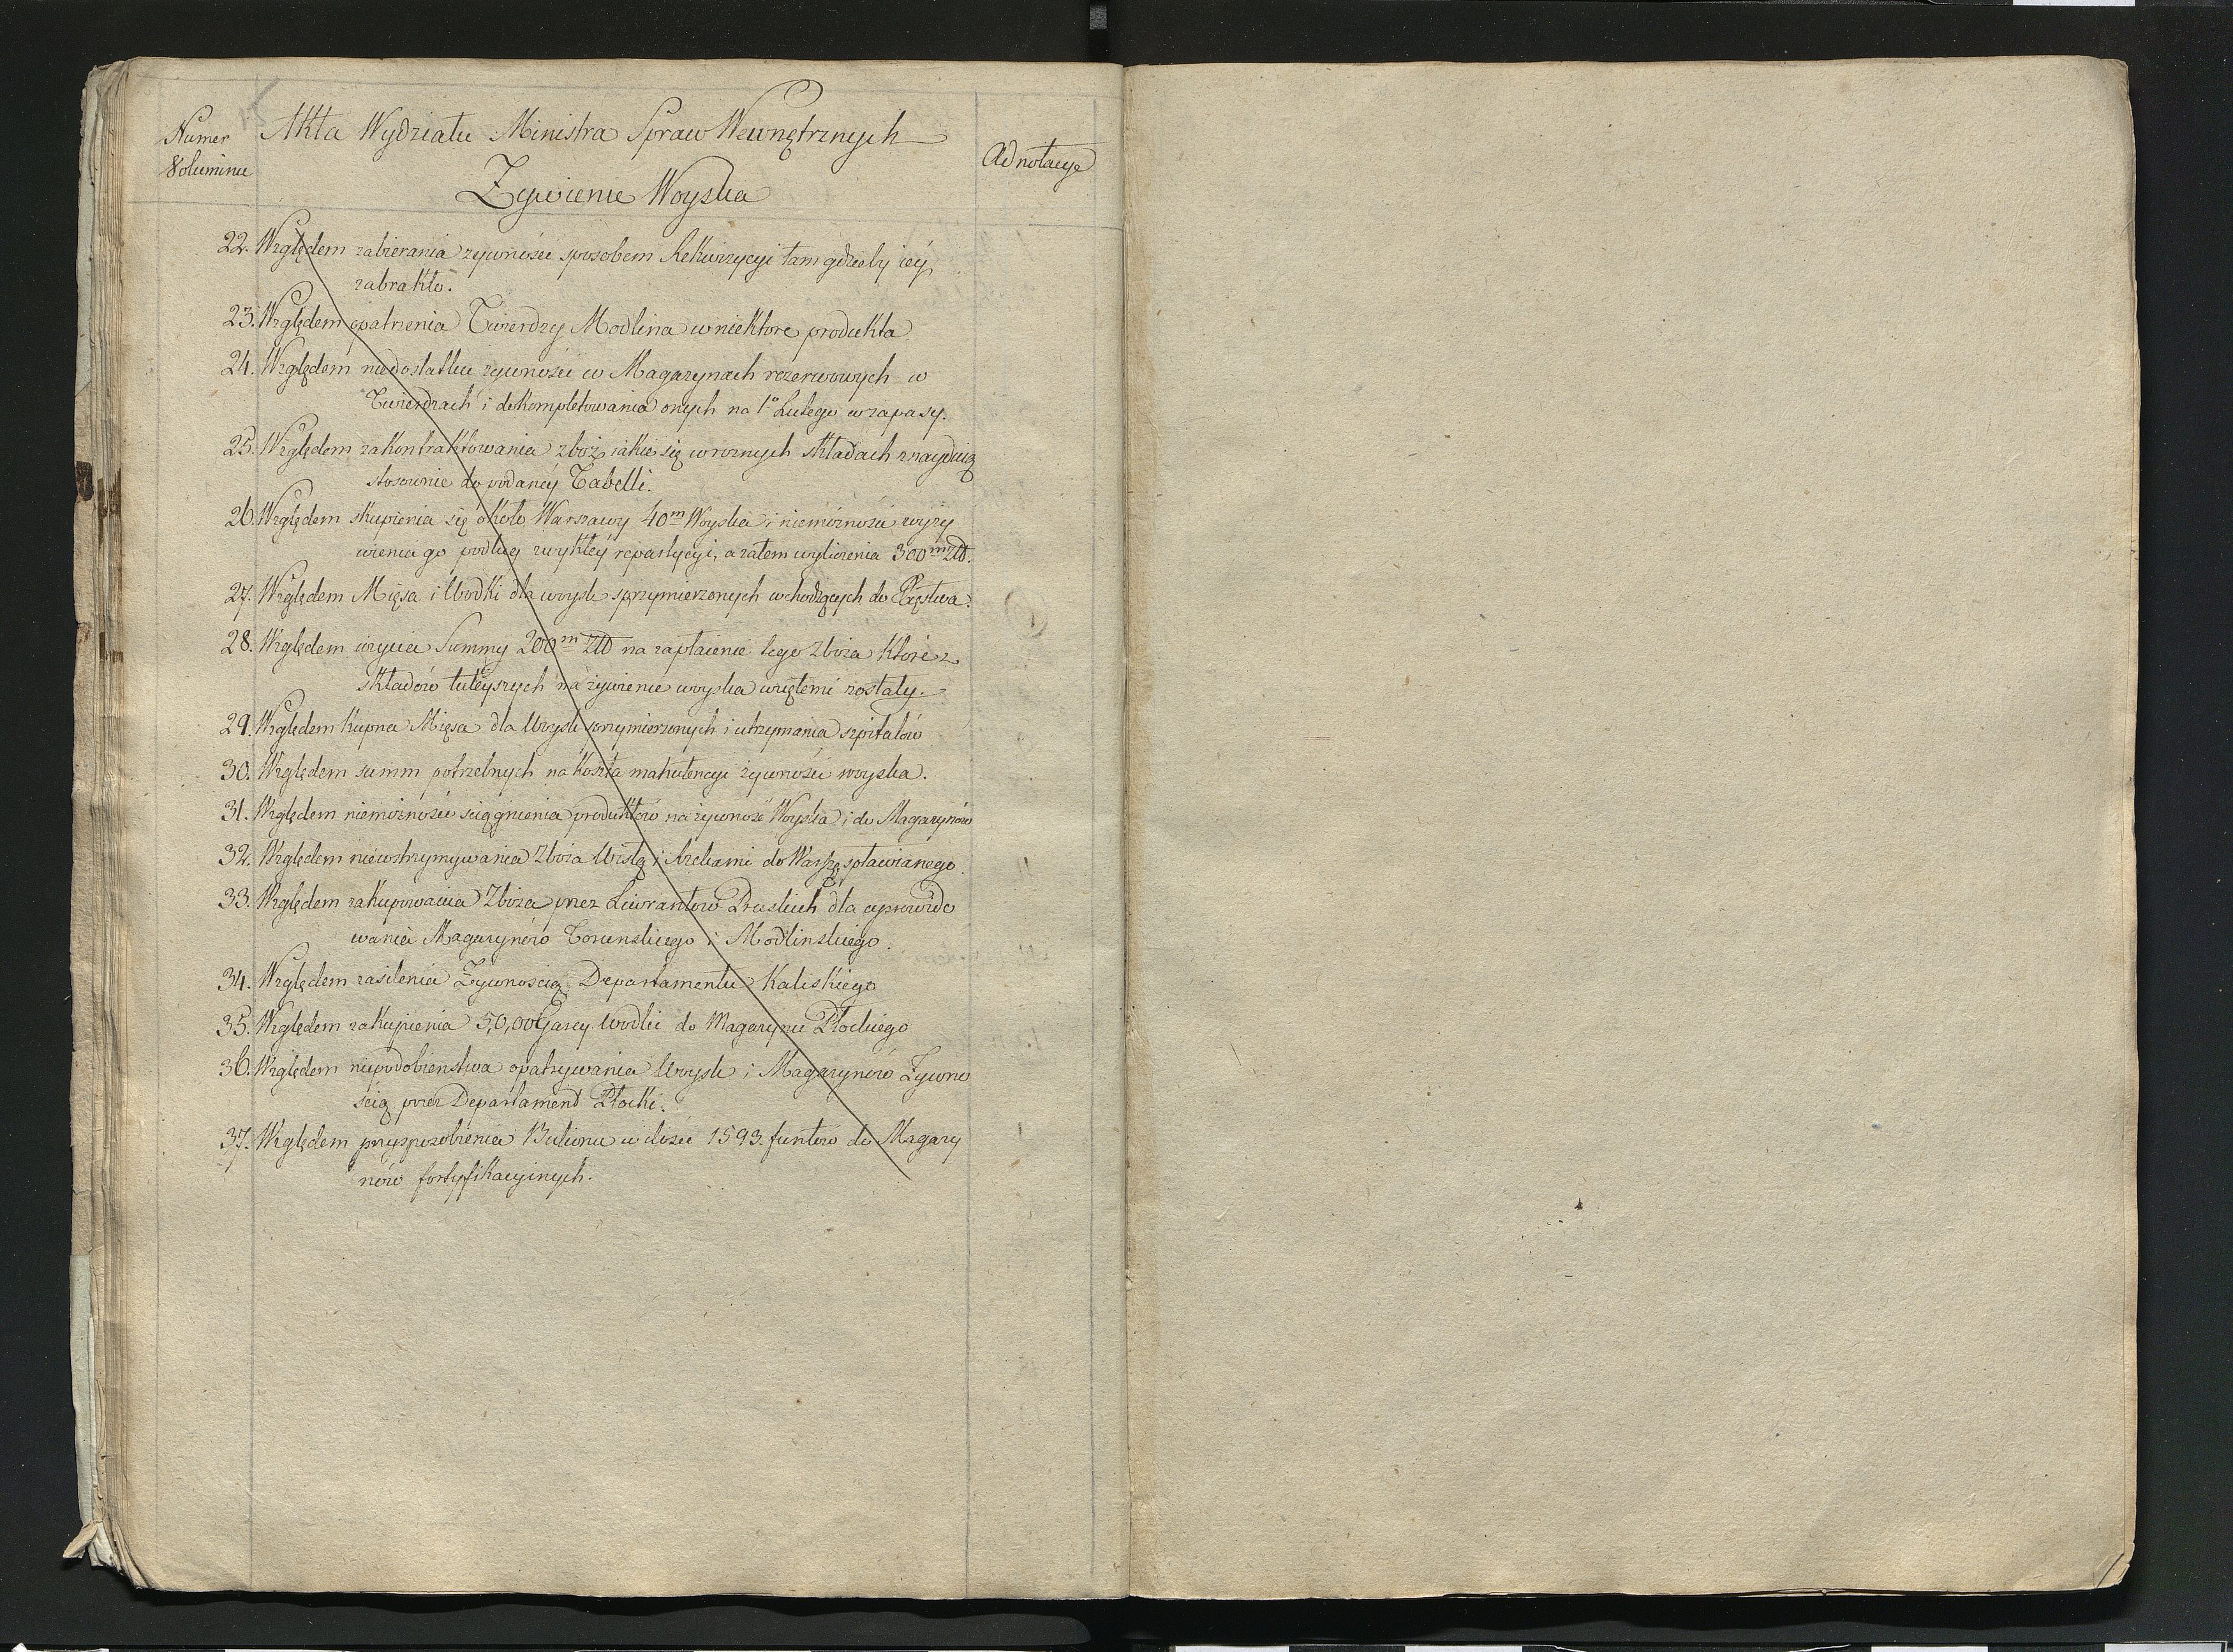 Numer
Voluminu
Akta Wydziału Ministra Spraw Wewnętrznych
Adnotacye
Zywienie Woyska
22. Względem zabierania zywności sposobem Rekwizycyi tam gdzieby iéy
zabrakło.
23. Względem opatrzenia Twierdzy Modlina w niektore produkta.
24. Względem niedostatku zywności w Magazynach rezerwowych w
Twierdzach i dokompletowania onych na 1o Lutego w zapasy.
25. Względem zakontraktowania zboż iakie się w roznych składach znayduią
stosownie do podanéy Tabelli.
26. Względem skupienia się około Warszawy 40m Woyska i niemożności wyży
wienia go podług zwykłéy repartycyi, a zatem wyliczenia 300m Złł.
27. Względem Mięsa i Wodki dla woysk sprzymierzonych wchodzących do Xięstwa.
28. Względem użycia Summy 200m Złł na zapłacenie tego zboża które z
składów tuteyszych na żywienie woyska wziętemi zostały.
29. Względem kupna Mięsa dla Woysk sprzymierzonych i utrzymania szpitalów
30. Względem summ potrzebnych na koszta żywności woyska.
31. Względem niemożności sciągnienia produktów na żywność Woyska i do Magazynów
32. Względem niewstrzymywania Zboża Wisłą i Rzekami do Warszy spławianego.
33. Względem zakupowania Zboża przez Liwrantow Pruskich dla aprowido
wania Magazynów Torunskiego i Modlinskiego.
34. Względem zasilenia Zywnością Departamentu Kaliskiego
35. Względem zakupienia 50,000 Garcy Wodki do Magazynu Płockiego
36. Względem niepodobienstwa opatrywania Woysk i Magazynów Zywno
ścią przez Departament Płocki.
37. Względem przysposobienia Bulionu w ilości 1593. funtow do Magazy
nów fortyfikacyinych.